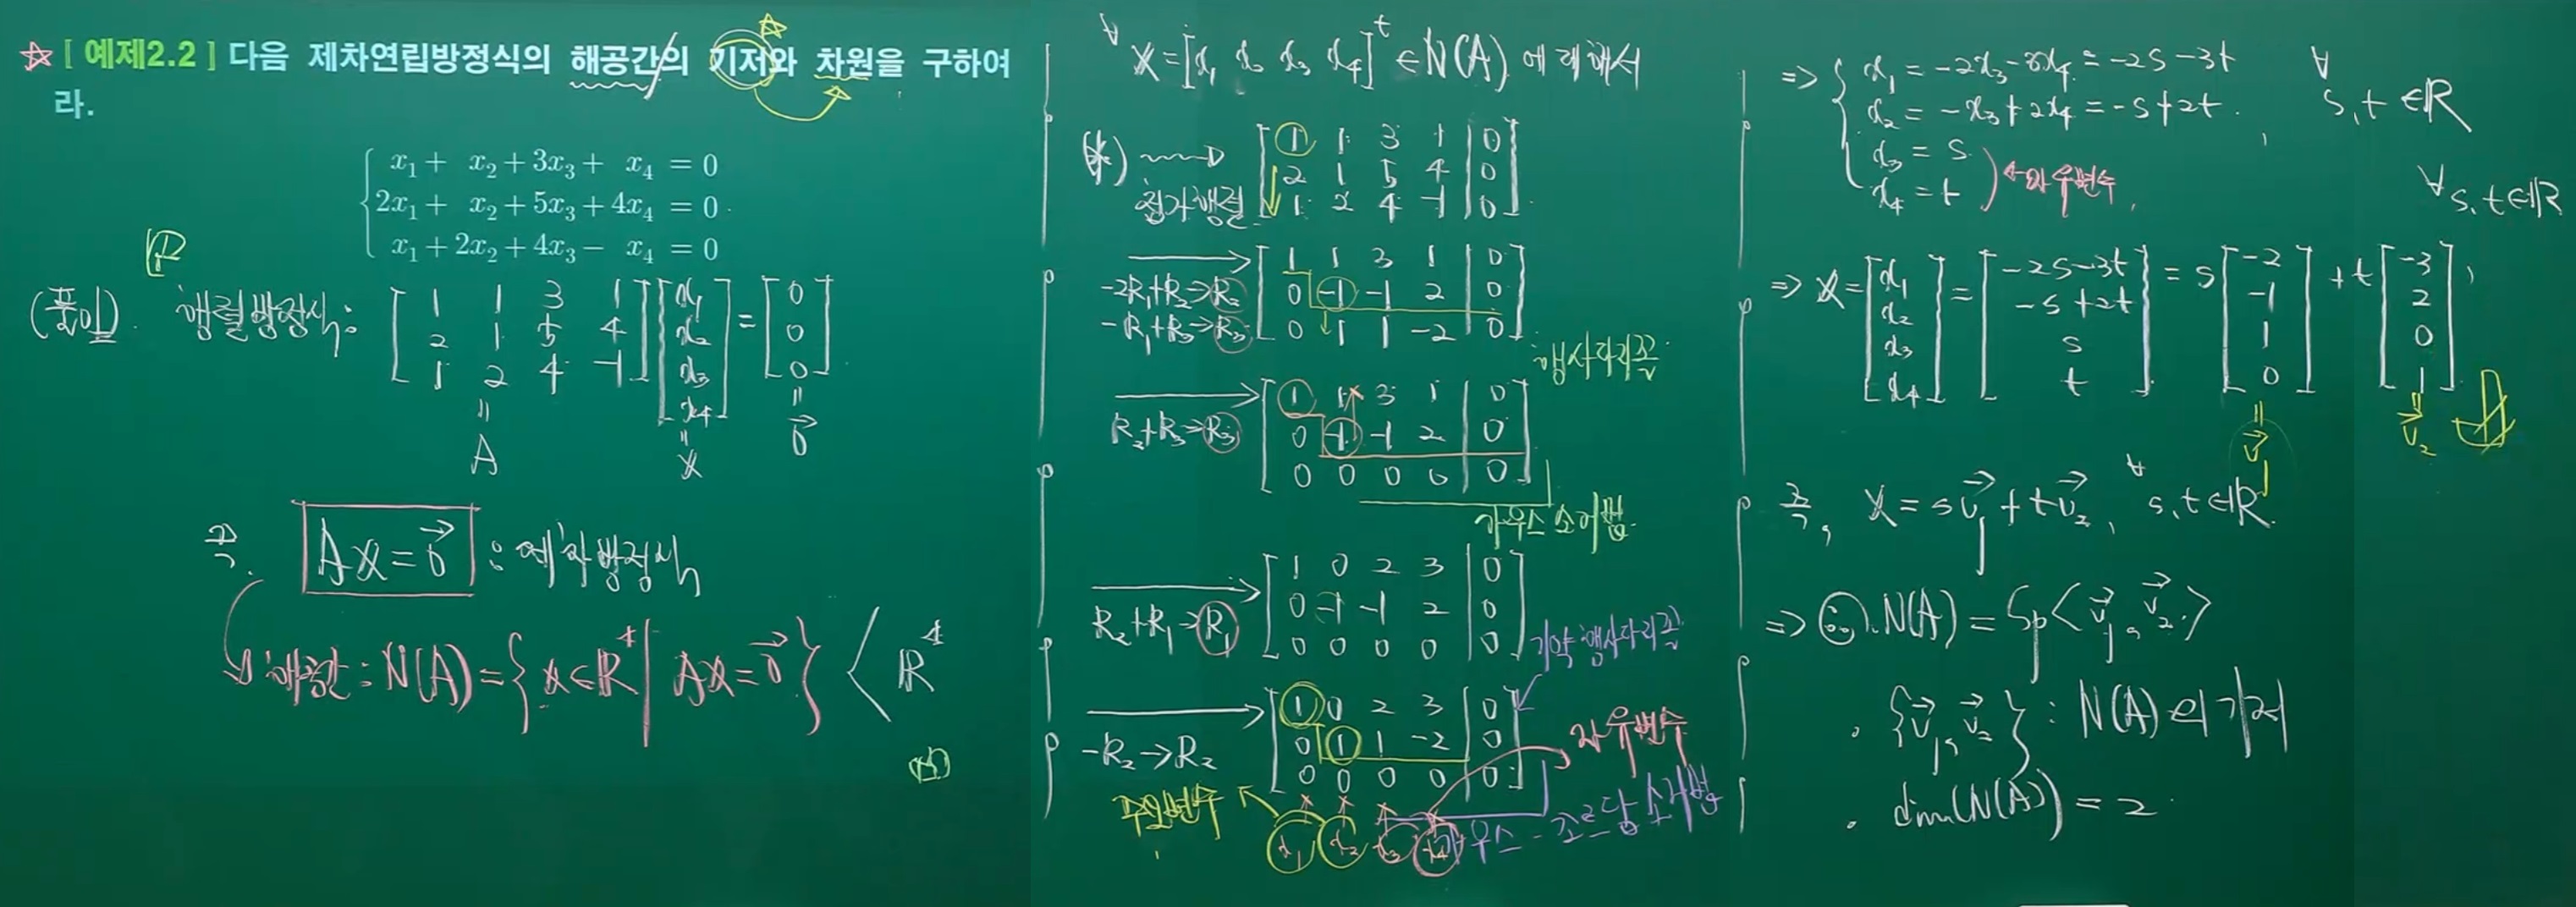 ☆ [ 예제2.2 ] 다음 제차연립방정식의 해공간의 기저와 차원을 구하여
라.
x₁ + x₂ + 3x₃ + x₄ = 0
2x₁ + x₂ + 5x₃ + 4x₄ = 0
x₁ + 2x₂ + 4x₃ − x₄ = 0
(풀이). 행렬방정식:
[1 1 3 1] [x₁] [0]
[2 1 5 4] [x₂] = [0]
[1 2 4 -1] [x₃] [0]
[x₄]
= A = X = 0⃗
즉, AX = 0⃗ : 제차방정식
해공간 : N(A) = { X ∈ ℝ⁴ | AX = 0⃗ } < ℝ⁴
(*)
∀X = [x₁ x₂ x₃ x₄]ᵗ ∈ N(A) 에 대해서
(*) ⟶
첨가행렬
[1 1 3 1 | 0]
[2 1 5 4 | 0]
[1 2 4 -1 | 0]
-2R₁+R₂→R₂
-R₁+R₃→R₃
[1 1 3 1 | 0]
[0 -1 -1 2 | 0]
[0 1 1 -2 | 0]
행사다리꼴
R₂+R₃→R₃
[1 1 3 1 | 0]
[0 -1 -1 2 | 0]
[0 0 0 0 | 0]
가우스 소거법
R₂+R₁→R₁
[1 0 2 3 | 0]
[0 -1 -1 2 | 0]
[0 0 0 0 | 0]
기약 행사다리꼴
-R₂→R₂
[1 0 2 3 | 0]
[0 1 1 -2 | 0]
[0 0 0 0 | 0]
자유변수
주요변수
x₁ x₂ x₃ x₄
가우스-조르단 소거법
⇒ { x₁ = -2x₃-3x₄ = -2s-3t
x₂ = -x₃+2x₄ = -s+2t ,
∀s,t ∈ℝ
x₃ = s
x₄ = t
←자유변수
∀s,t∈ℝ
⇒ X = [x₁] = [-2s-3t] = s[-2] + t[-3] ,
[x₂] [-s+2t] [-1] [2]
[x₃] [s] [1] [0]
[x₄] [t] [0] [1]
= v⃗₁ = v⃗₂
즉, X = sv⃗₁ + tv⃗₂, ∀s,t∈ℝ
⇒ ∴ N(A) = Sp<v⃗₁, v⃗₂>
· {v⃗₁, v⃗₂} : N(A)의 기저
· dim(N(A)) = 2